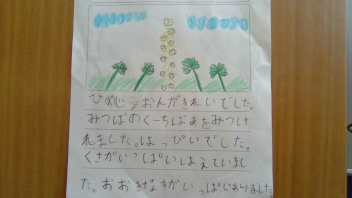 ひめじょおんがきれいでした。
みつばのくーろばあをみつけ
れました。はっぴいでした。
くさがいっぱいはえていまし
た。おおきなきがいっぱいありました